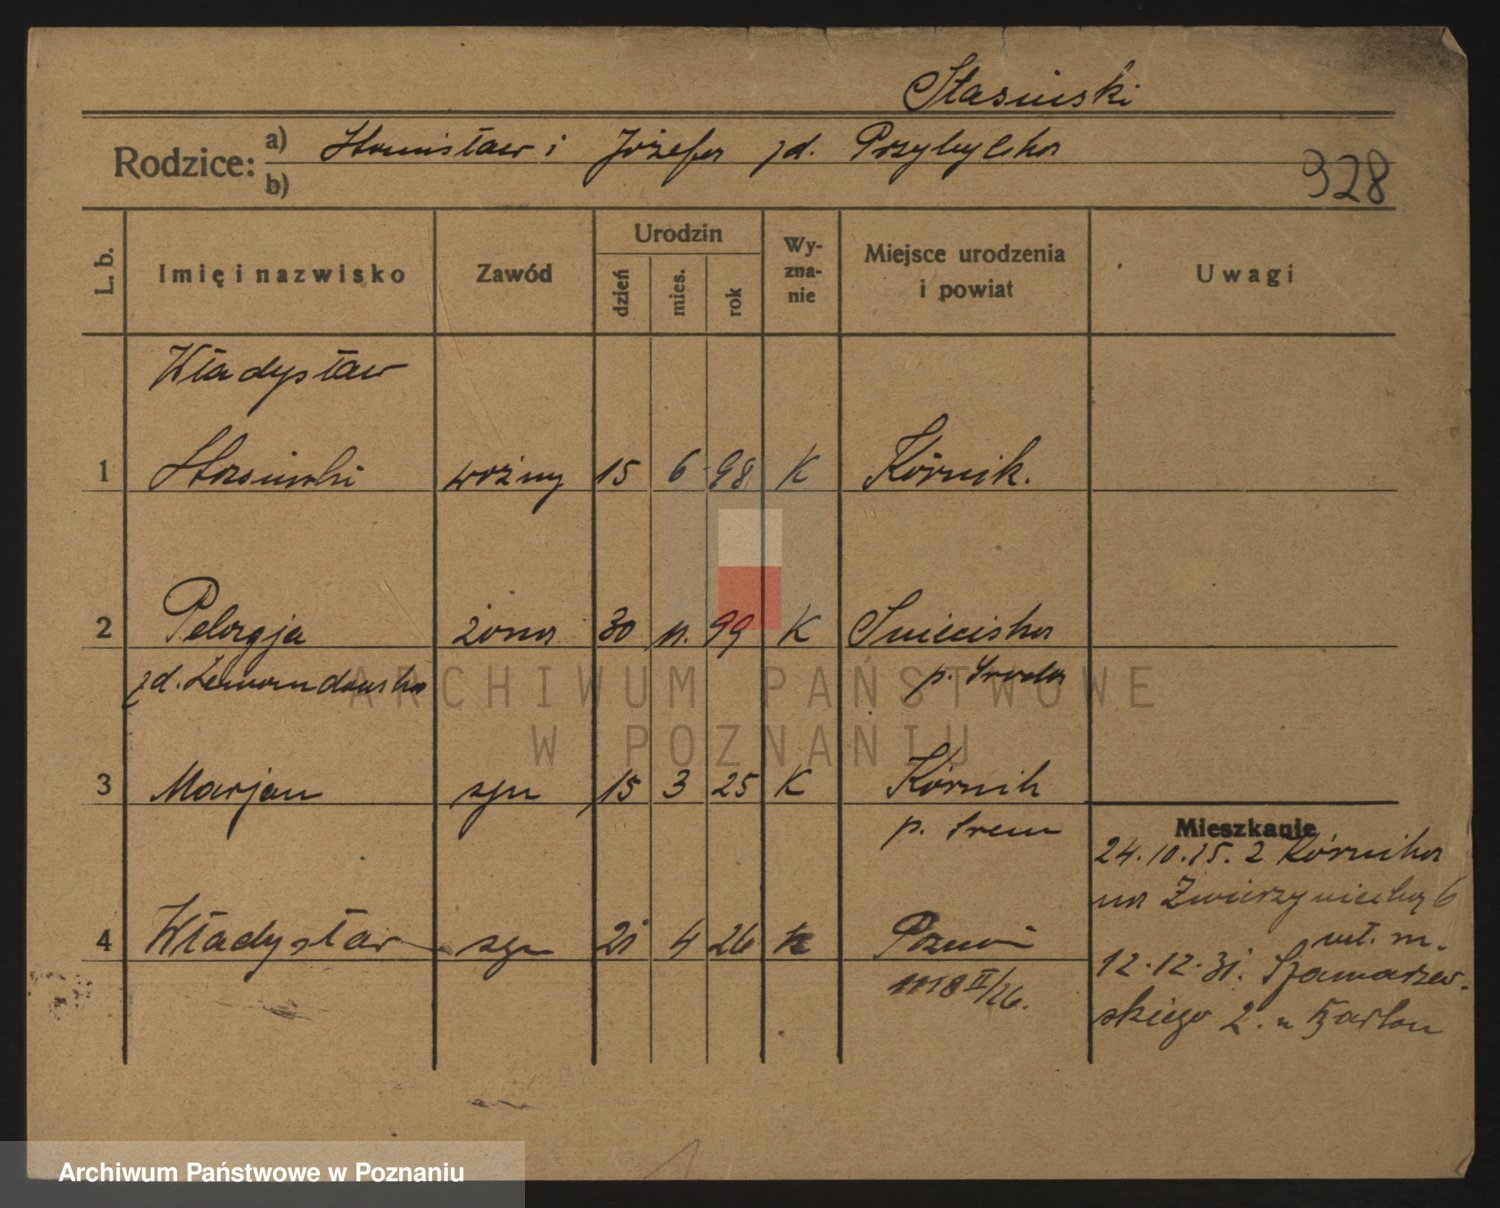 Stasinski
Rodzice: a) Stanisław i Józefa zd. Przybylska
b)
928
L. b. Imię i nazwisko Zawód Urodzin dzień mies. rok Wyznanie Miejsce urodzenia i powiat Uwagi
Władysław
1 Stasinski woźny 15 6 98 K Kórnik.
2 Pelagja żona 30 11. 99 K Śnieciska
zd. Lewandowska p. Środa
ARCHIWUM PAŃSTWOWE
W POZNANIU
3 Marjan syn 15 3 25 K Kórnik
p. Śrem
Mieszkanie
24.10.25. z Kórnika
na Zwierzyniecką 6
4 Władysław syn 21 4 26 K Poznań
1118 II/26.
12.12.31. Szamarzew-
skiego 2.
Archiwum Państwowe w Poznaniu